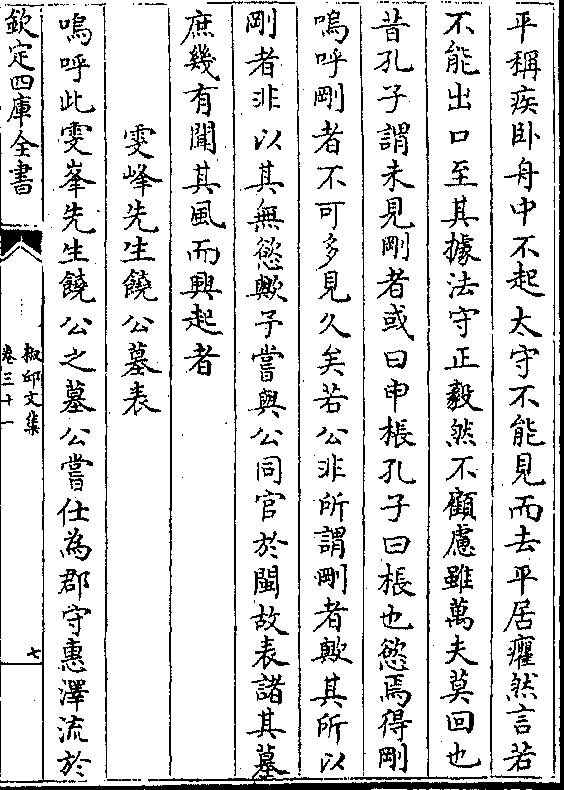 平稱疾卧舟中不起太守不能見而去平居癯然言若
不能出口至其據法守正毅然不顧慮雖萬夫莫回也
昔孔子謂未見剛者或曰申棖孔子曰棖也慾焉得剛
嗚呼剛者不可多見久矣若公非所謂剛者歟其所以
剛者非以其無慾歟子嘗與公同官於閩故表諸其墓
庶幾有聞其風而興起者
雯峰先生饒公墓表
嗚呼此雯峯先生饒公之墓公嘗仕為郡守惠澤流於
欽定四庫全書
椒邱文集
卷三十一
七